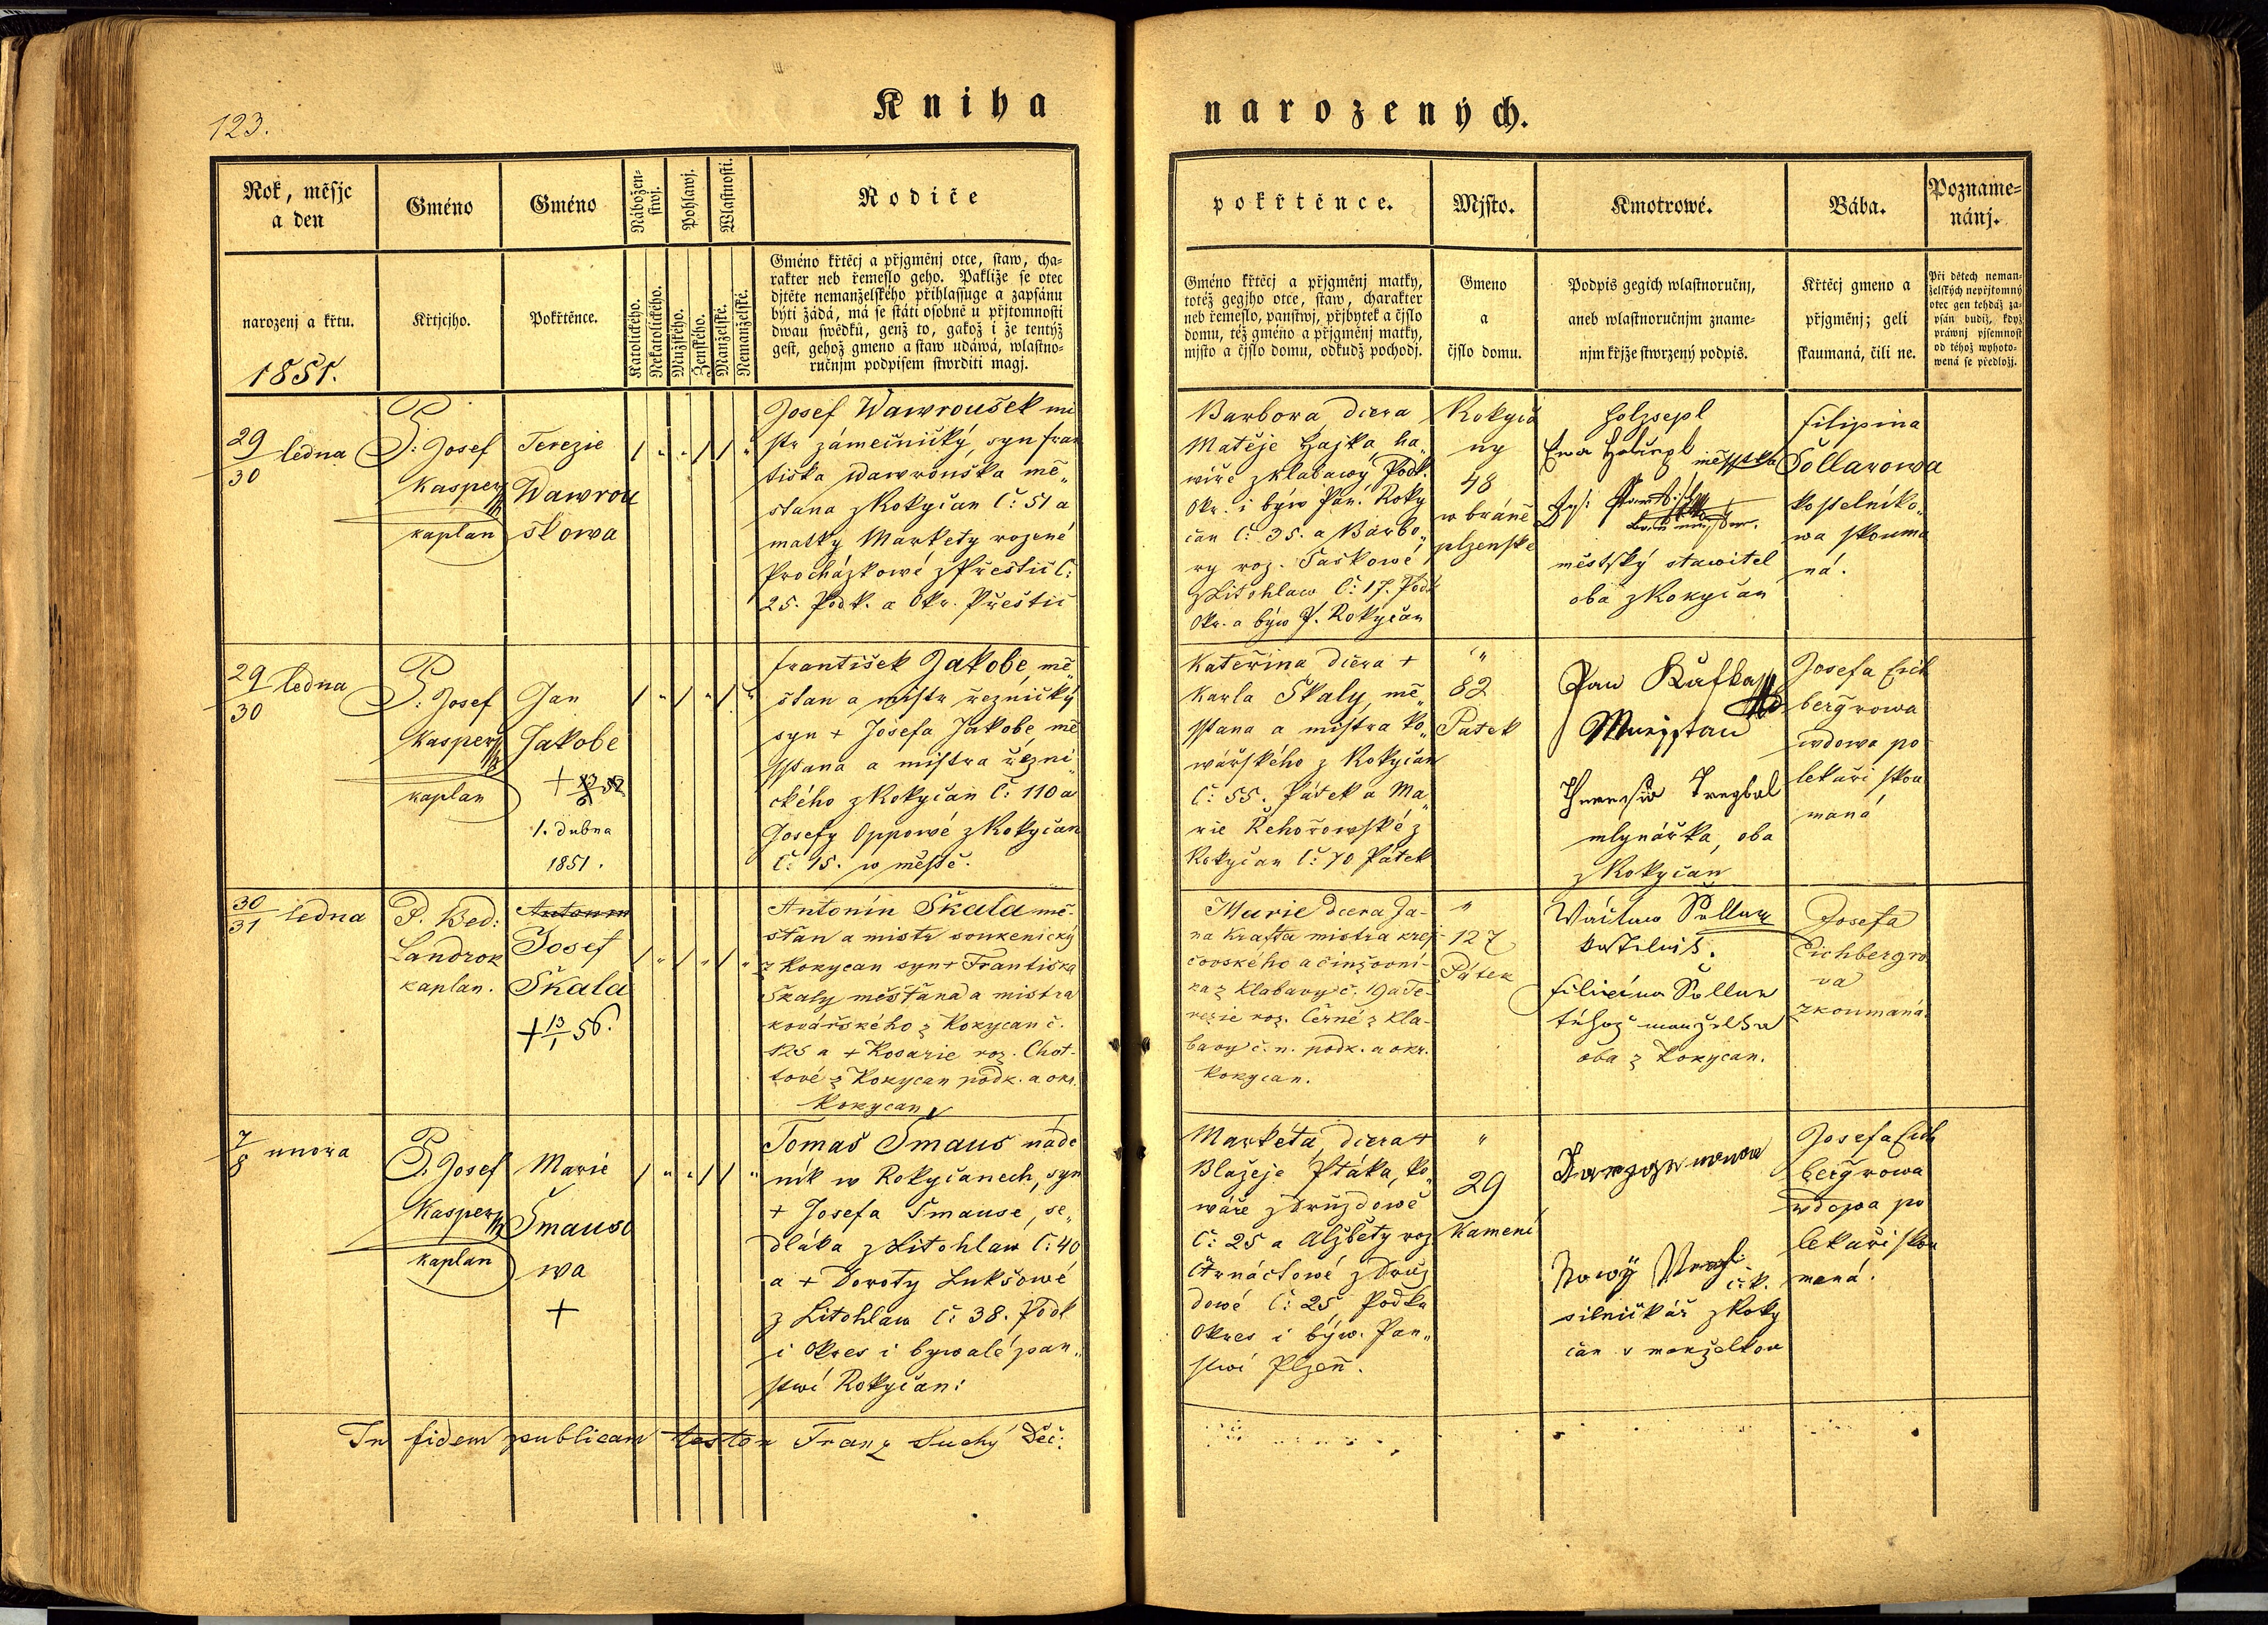 123.
Kniha
narozených.
Rok, měsjc
a den
narozenj a křtu.
1851.
Gméno
Křtjcjho.
Gméno
Pokřtěnce.
Nábožen-
stwj.
Katolického.
Nekatolického.
Pohlawj.
Mužského.
Ženského.
Wlastnosti.
Manželské.
Nemanželské.
Rodiče
Gméno křtěcj a přjgměnj otce, staw, cha-
rakter neb řemeslo geho. Pakliže se otec
djtěte nemanželského přihlassuge a zapsánu
býti žádá, má se státi osobně u přjtomnosti
dwau swědků, genž to, gakož i že tentýž
gest, gehož gmeno a staw udáwá, wlastno-
ručnjm podpisem stwrditi magj.
pokřtěnce.
Gméno křtěcj a přjgměnj matky,
totéž gegjho otce, staw, charakter
neb řemeslo, panstwj, přjbytek a čjslo
domu, též gméno a přjgměnj matky,
mjsto a čjslo domu, odkudž pochodj.
Mjsto.
Gmeno
a
čjslo domu.
Kmotrowé.
Podpis gegich wlastnoručnj,
aneb wlastnoručnjm zname-
njm křjže stwrzený podpis.
Bába.
Křtěcj gmeno a
přjgměnj; geli
skaumaná, čili ne.
Pozname-
nánj.
Při dětech neman-
želských nepřjtomný
otec gen tehdáž za-
psán budiž, když
práwnj pjsemnost
od téhož wyhoto-
wená se předložj.
29/30 ledna
P. Josef
Kaspery
kaplan
Terezie
Wawrou
skowa
Josef Wawroušek mi
str zámečnický, syn fran
tiska Wawrouška mě„
stana z Rokyčan č: 51 a
matky Markety rozené
Procházkowé z Přestic č:
25. Podk. a Okr. Přestic
Barbora dcera
Matěje Hajka, ha„
wíře z Klabawy Podk.
Okr. i býw Pan. Roky
čan č: 35. a Barbo„
ry roz. Taškowé
z Litohlaw č: 17. Podk
Okr. a býw P. Rokyčan
Rokyča
ny
48
w bráně
plzenské
Holzsepl
Ewa Holzepl měsstka
městský stawitel
oba z Rokyčan
Filipina
Šollarowa
kostelniko„
wa skouma
ná.
29/30 ledna
P. Josef
Kaspery
kaplan
Jan
Jakobe
1. dubna
1851.
František Jakobe, mě„
stan a mistr řeznický
syn + Josefa Jakobe, mě
sstana a mistra řezni„
ckého z Rokyčan č: 110 a
Josefy Oppowé z Rokyčan
č: 15. w městě.
Kateřina dcera +
Karla Skaly, mě„
sstana a mistra ko„
wářského z Rokyčan
č: 55. Pátek a Ma„
rie Řehořowské z
Rokyčan č: 70 Pátek
„
82
Patek
Jan Kafka
mlynářka, oba
z Rokyčan
Josefa Eich
bergrowa
wdowa po
lekaři skou
maná
30/31 ledna
P. Bed:
Landrok
kaplan.
Antonin
Josef
Škala
+ 13/1 56.
Antonín Škala mě-
stan a mistr soukenický
z Rokycan syn + Františka
Škaly měšťana a mistra
kovářského z Rokycan č.
125 a + Rosarie roz. Chot-
tové z Rokycan podk. a okr.
Rokycan
Marie dcera Ja-
na Krafta mistra krej-
čovského a činžovní-
ka z Klabavy č. 19 a Te-
rezie roz. Černé z Kla-
bavy č. n. podk. a okr.
Rokycan.
„
127
Pátek
Wáclaw Šollar
kostelnik.
Filipina Šollar
téhož manželka
oba z Rokycan.
Josefa
Eichbergro
va
zkoumaná.
7/8 unora
P. Josef
Kaspery
kaplan
Marie
Šmauso
wa
+
Tomaš Šmaus náde
ník w Rokyčanech, syn
+ Josefa Šmause, se„
dláka z Litohlaw č: 40
a + Doroty Lukšowé
z Litohlaw č: 38. Podk
i Okres i bywalé pan„
stwí Rokyčan:
Markéta, dcera +
Blažeje Ptáka, ko„
wáře z Druzdowé
č: 25 a Alžběty roz
Čtrnáctowé z Druz
dowé č: 25 Podkr
Okres i býw. Pan„
stwí Plzeň.
„
29
Kamení
Nowý
silničkář z Roky
čan s manželkou
Josefa Eich
bergrowa
wdowa po
lekaři skou
maná.
In fidem publicam testor Franz Suchý Děč: